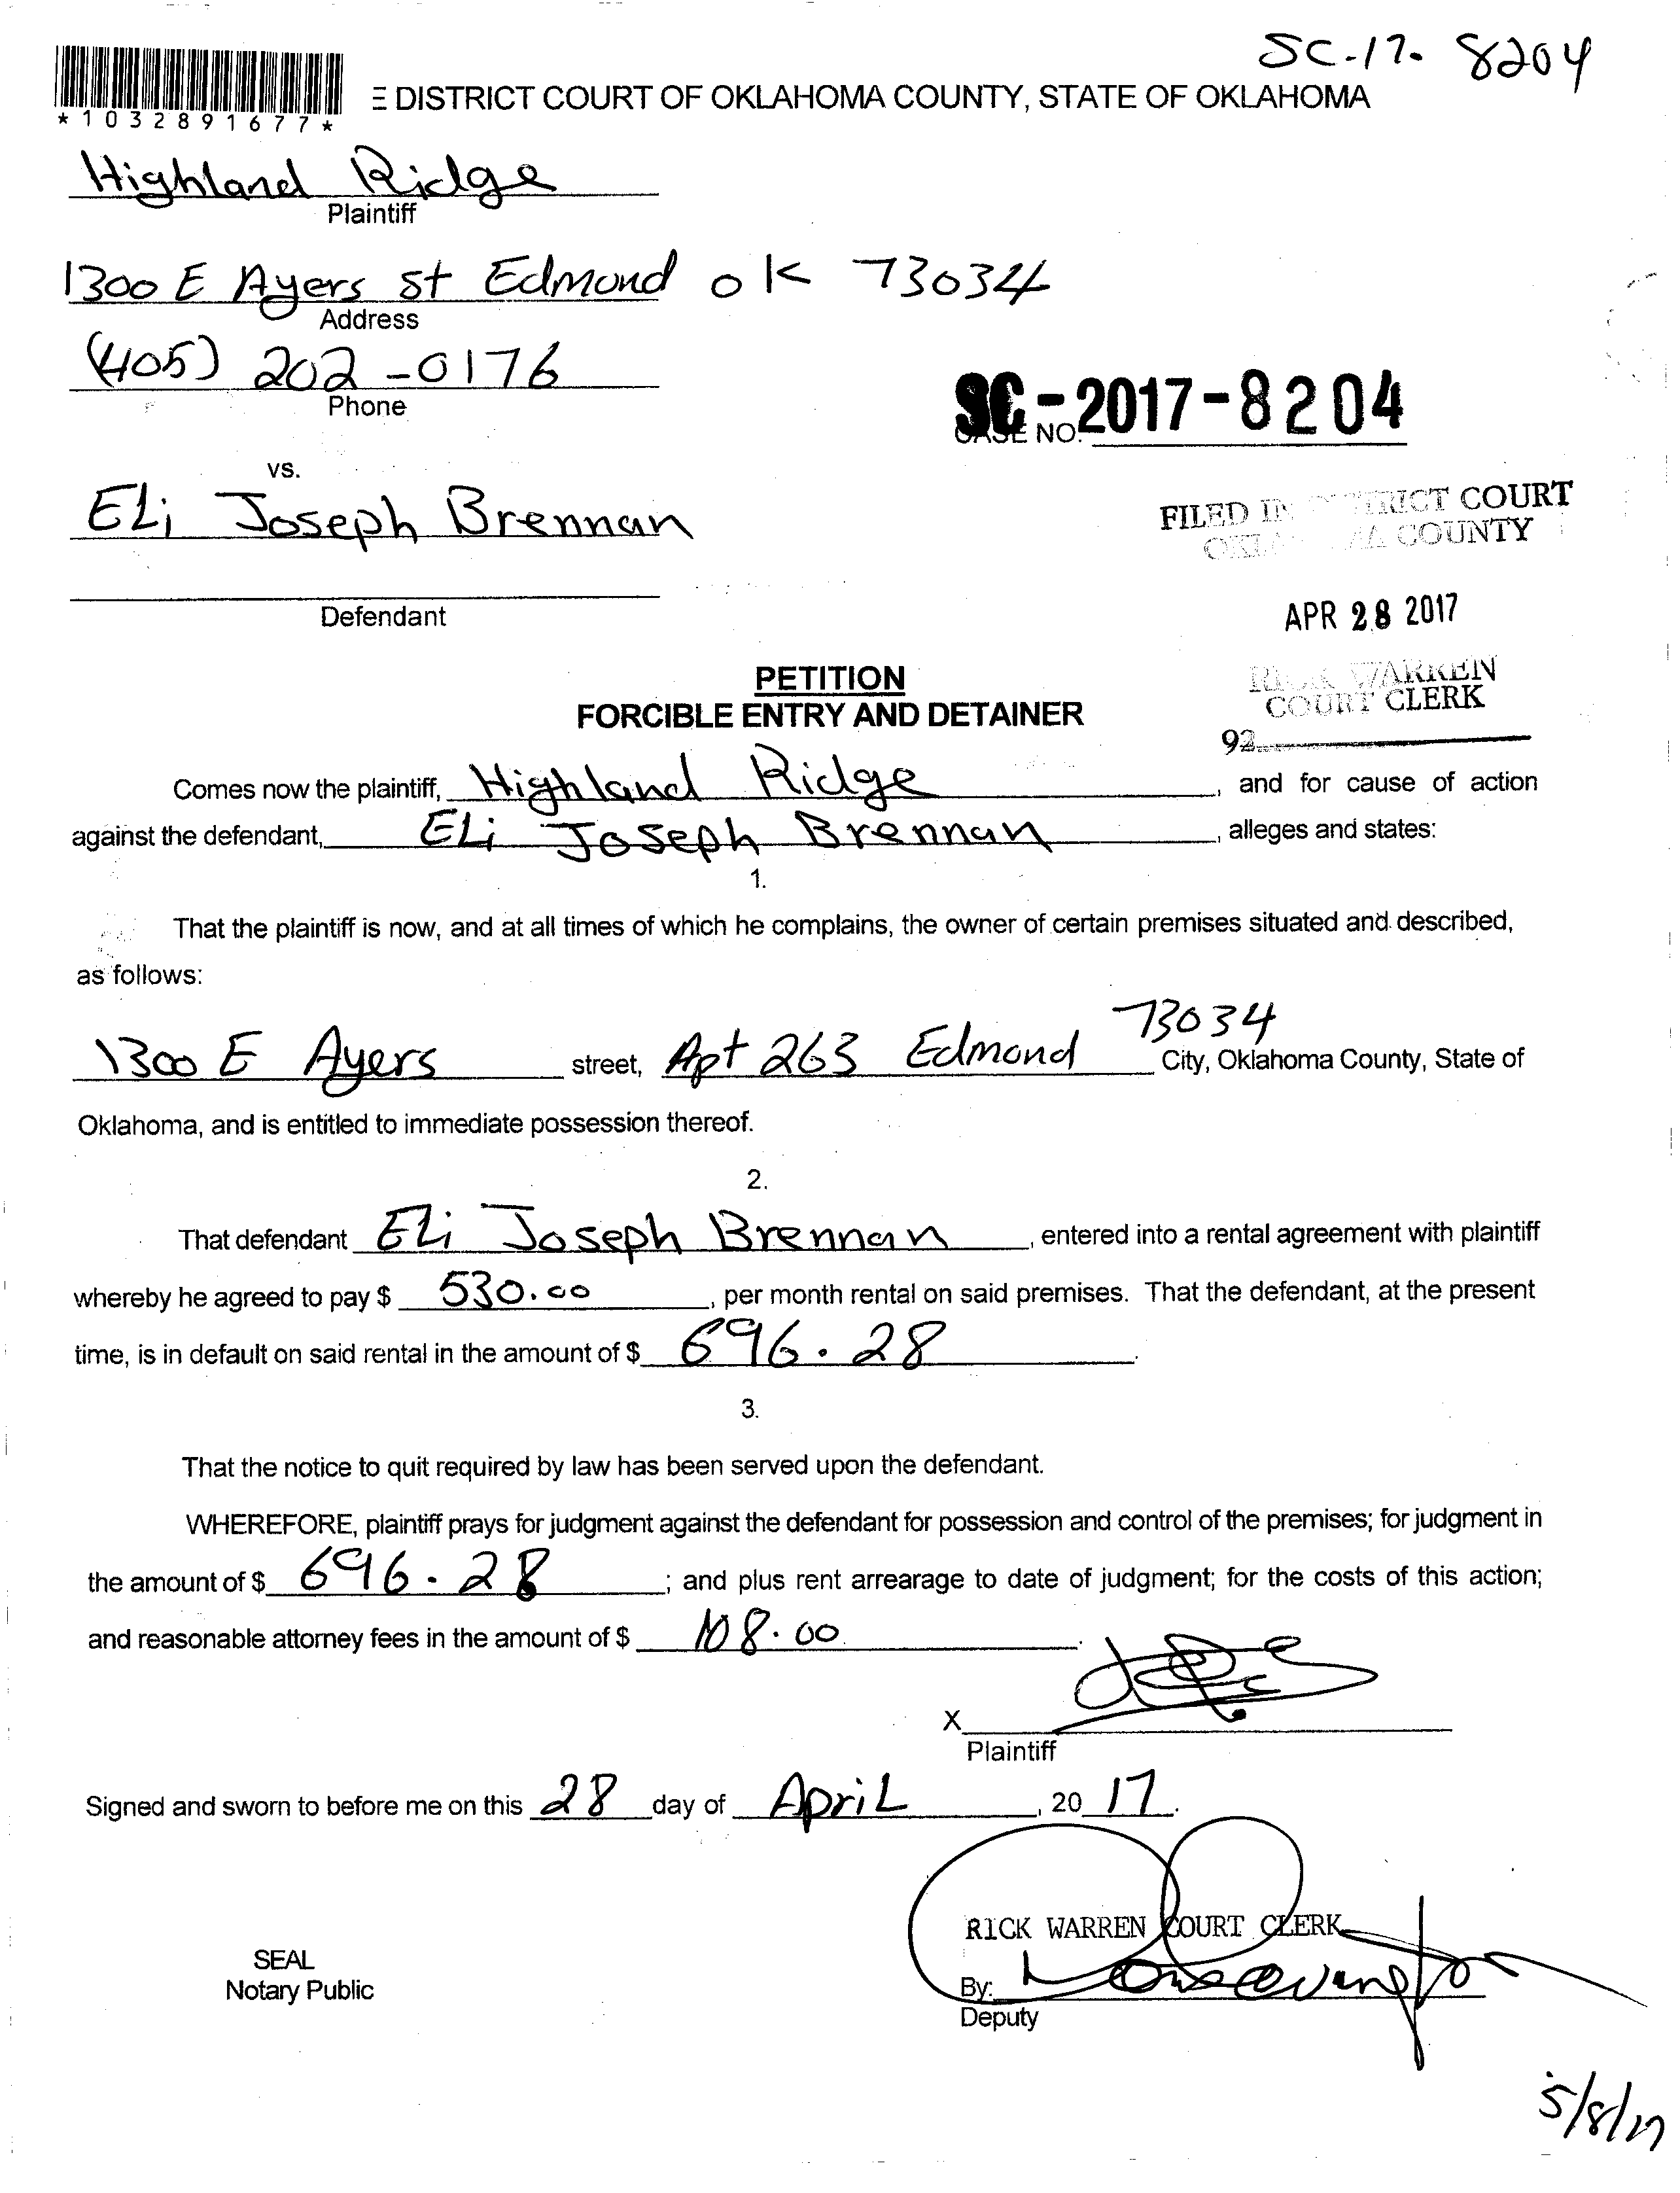 SC-17-8204
*1032891677*
E DISTRICT COURT OF OKLAHOMA COUNTY, STATE OF OKLAHOMA
Highland Ridge
Plaintiff
1300 E Ayers St Edmond OK 73034
Address
(405) 202-0176
Phone
SC-2017-8204
CASE NO.
vs.
ELi Joseph Brennan
FILED IN DISTRICT COURT
OKLAHOMA COUNTY
Defendant
APR 28 2017
PETITION
RICK WARREN
FORCIBLE ENTRY AND DETAINER
COURT CLERK
92
Comes now the plaintiff, Highland Ridge, and for cause of action
against the defendant, ELi Joseph Brennan, alleges and states:
1.
That the plaintiff is now, and at all times of which he complains, the owner of certain premises situated and described,
as follows:
1300 E Ayers street, Apt 263 Edmond 73034 City, Oklahoma County, State of
Oklahoma, and is entitled to immediate possession thereof.
2.
That defendant ELi Joseph Brennan, entered into a rental agreement with plaintiff
whereby he agreed to pay $ 530.00, per month rental on said premises. That the defendant, at the present
time, is in default on said rental in the amount of $ 696.28.
3.
That the notice to quit required by law has been served upon the defendant.
WHEREFORE, plaintiff prays for judgment against the defendant for possession and control of the premises; for judgment in
the amount of $ 696.28; and plus rent arrearage to date of judgment; for the costs of this action;
and reasonable attorney fees in the amount of $ 108.00.
X
Plaintiff
Signed and sworn to before me on this 28 day of ApriL, 20 17.
RICK WARREN COURT CLERK
SEAL
Notary Public
By:
Deputy
5/8/17